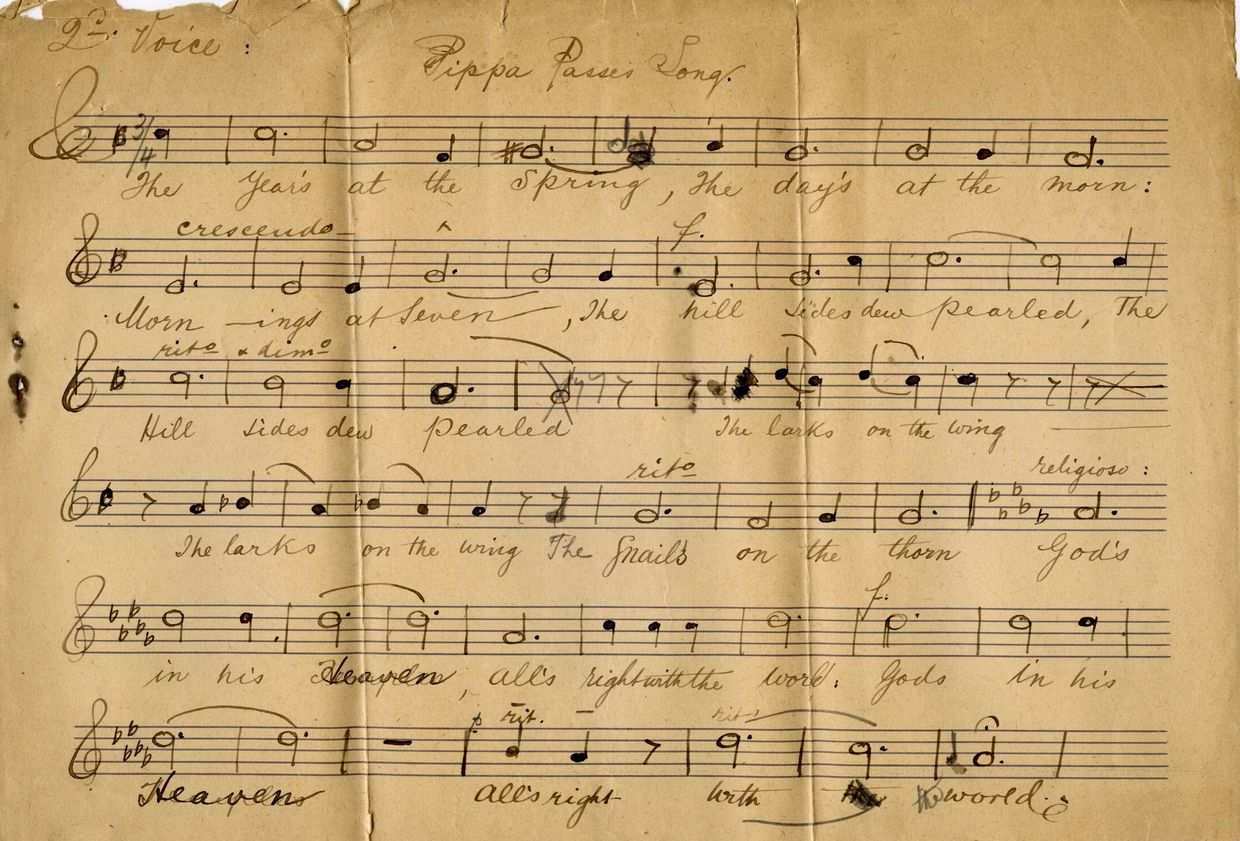 2nd. Voice :
Pippa Passes Song.
3/4
The Year's at the Spring, The day's at the morn:
crescendo f.
Morn -ings at Seven, The hill sides dew pearled, The
rito & dimo
Hill sides dew pearled The larks on the wing
rito religioso :
The larks on the wing The Snails on the thorn God's
f.
in his Heaven, all's right with the world: Gods in his
p rit. rito
Heavens All's right with the world.